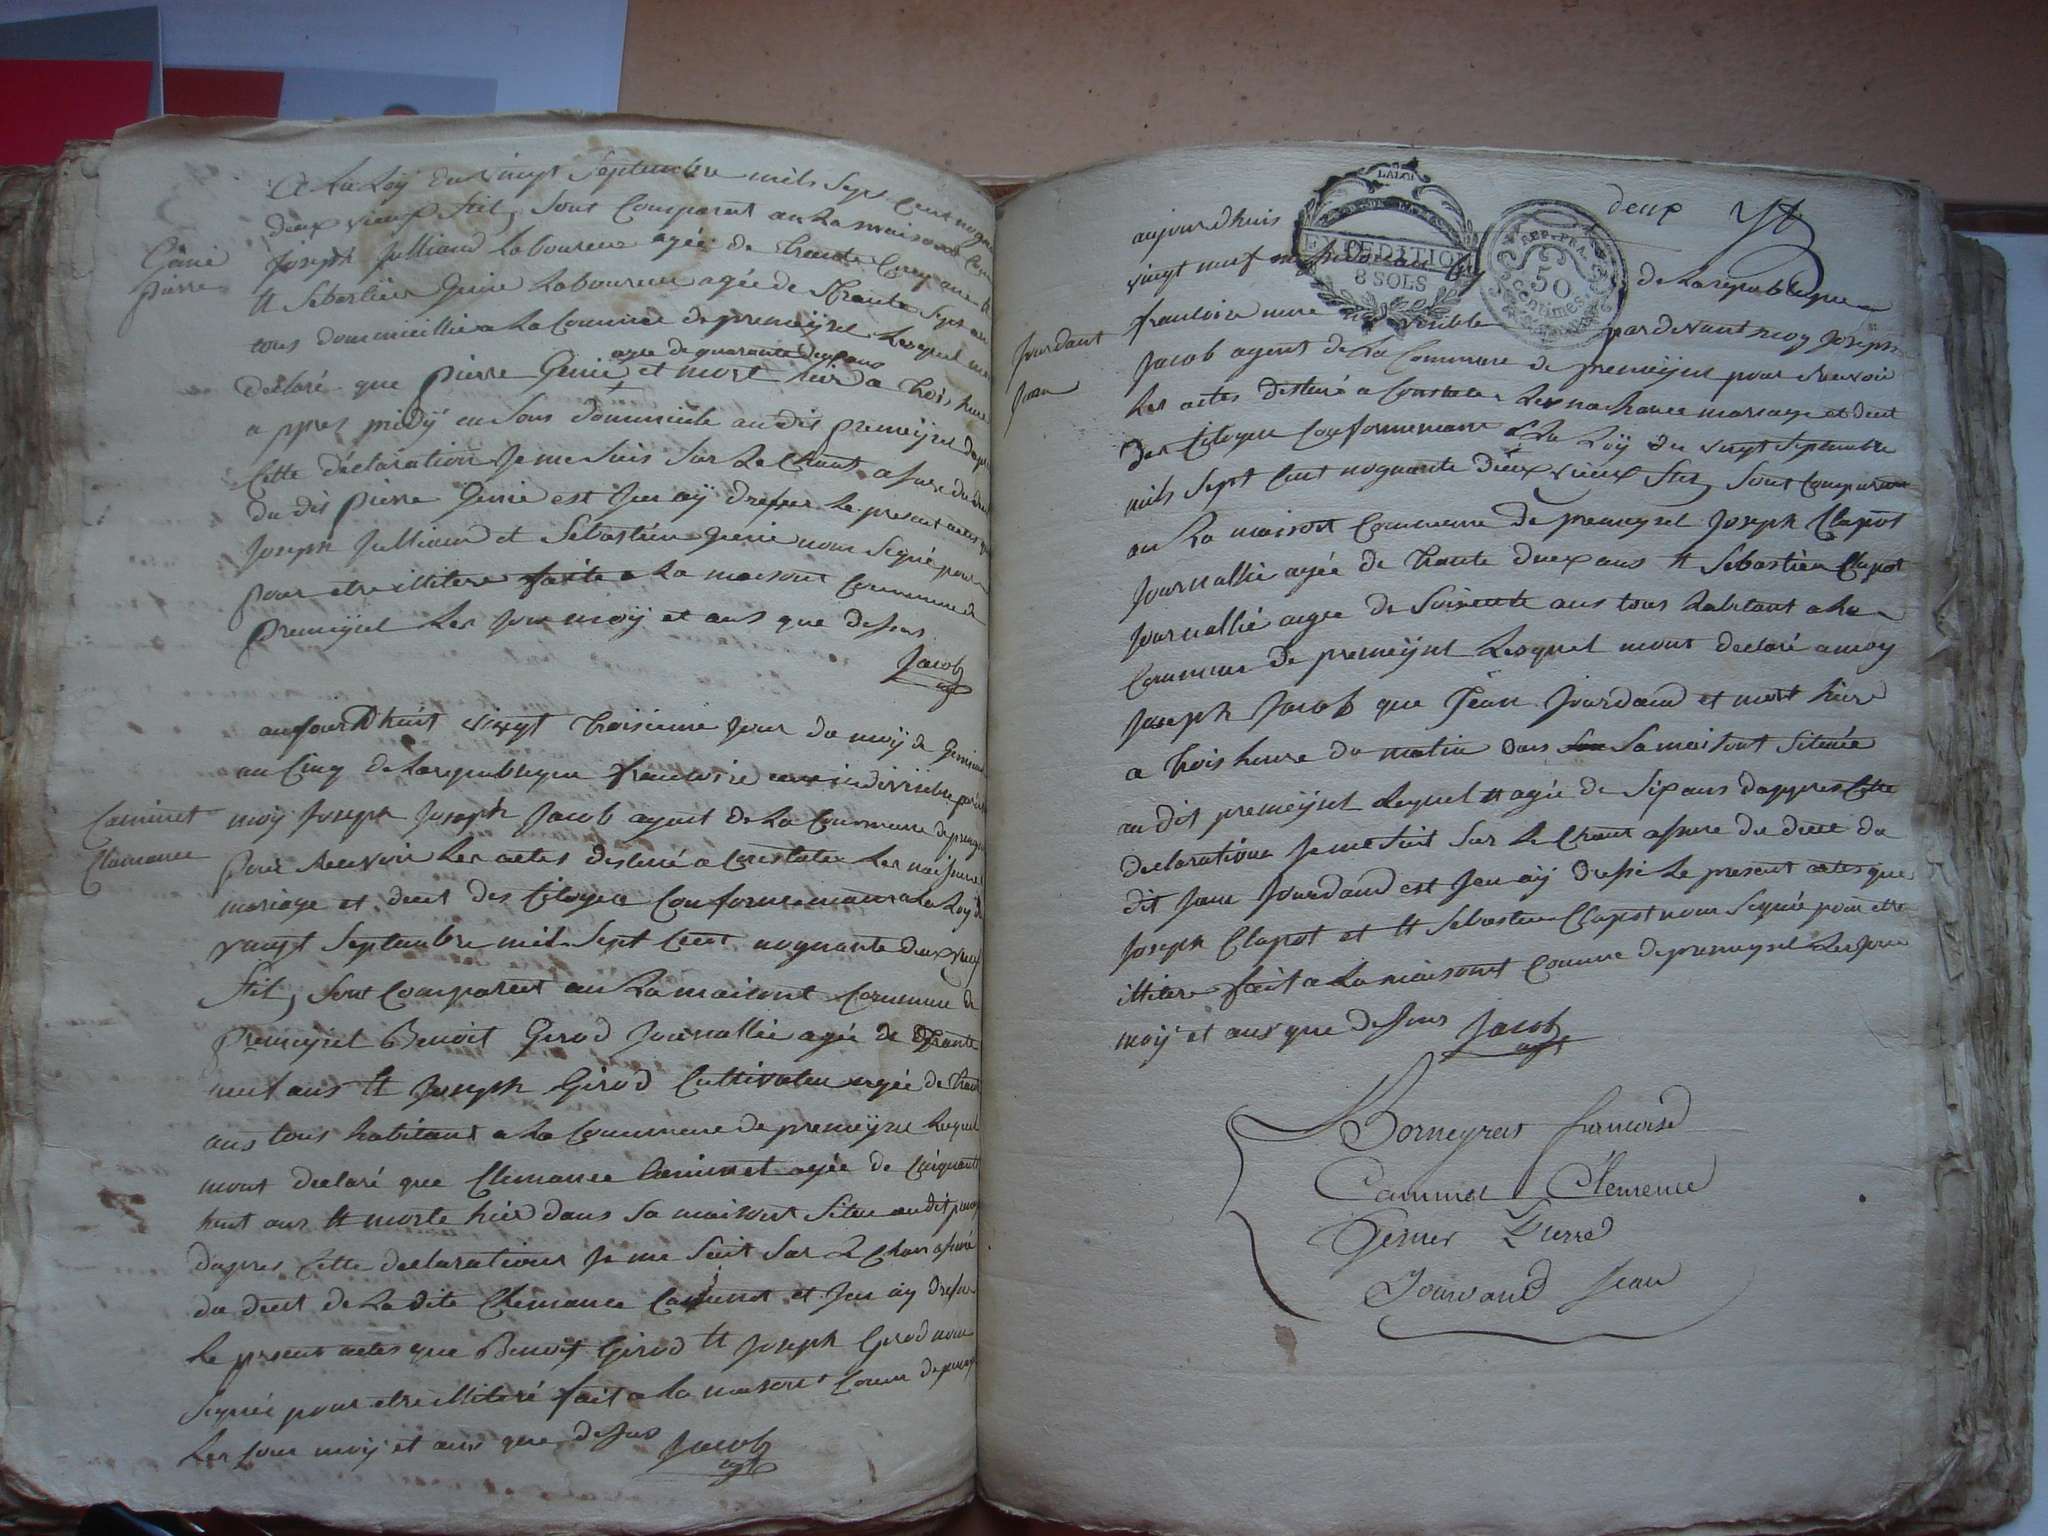 et La Loÿ du vingt Septembre mils Sept Cent nogua
deux vieux stil, sont Comparut au La maison Com
Genie
pierre
Joseph Julliand Laboureur agée de trante Cinq ans
tt Sebastien Genie Laboureur agée de trante Sept an
tous dommicillie a La Commune de premeÿsel Lesquel mon
agée de quarante deux ans
declaré que pierre Genie et mort hier a trois heure
appres midÿ en Sons dommicile au dit premeÿsel dapres
Cette déclaration Je me Suis Sur Le Chant assure du deces
du dit pierre Genie est Jen aÿ dresser Le present actes que
Joseph Julliand et Sebastien Genie nont Signé pour
pour etre illitere faite a La maisont Commune de
premeÿsel Les Jour moÿ et ans que dessus
Jacob
agt
aujourdhuit vingt troisieme Jour du moÿ de Germinal
an Cinq de Larepublique francoise une indivisible par de
Caminet
Clemance
moÿ Joseph Joseph Jacob agent de La Commune de premeÿ
pour Recevoir Les actes destiné a Constater Les naissance
mariage et deces des Citoyen Conformemant a La Loÿ du
vingt Septembre mil Sept Cent noguante deux vieux
stil, Sont Comparut au La maisont Commune de
Premeÿsel Benoit Girod Journallié agée de trante
neuf ans tt Joseph Girod Cultivateur agée de trante
ans tous habitant a La Commune de premeÿsel Lequel
mont declaré que Clemance Caminet agée de Cinquante
huit ans tt morte hier dans Sa maisont Situé audit preme
dapres Cette declarations Je me Suit Sur Le Chan assuré
du deces de La dite Clemance Caminet et Jen aÿ dresse
Le present actes que Benoit Girod tt Joseph Girod nont
Signée pour etre illiteré fait a La maisont Comm de premeÿ
Les Jour moÿ et ans que dessus Jacob
agt
LA LOI
EXPEDITION
8 SOLS
REP. FRA.
50
centimes
deux
aujourdhuis
vingt neuf de La republique
Jourdant
Jean
francoise une indivisible par devant moÿ Joseph
Jacob agent de La Commune de premeÿsel pour Recevoir
Les actes destiné a Constater Les naissance mariage et deces
des Citoyen Conformemant a La Loÿ du vingt Septembre
mils Sept Cent noguante deux vieux stil, Sont Comparut
au La maisont Commune de premeysel Joseph Clapot
Journallié agée de trante deux ans tt Sebastien Clapot
Journallié agée de Soixente ans tous habitant a La
Commune de premeÿsel Lesquel mont declaré a moy
Joseph Jacob que Jean Jourdand et mort hiere
a trois heure du matin dans Sa maisont Située
au dit premeÿsel Lequel tt agée de Six ans dappres Cette
declarations Je me Suit Sur Le Chant assure du deces du
dit Jean Jourdand est Jen aÿ dressé Le present actes que
Joseph Clapot et tt Sebastien Clapot nont Signée pour etre
illitere fait a La maisont Commune de premeysel Les Jour
moÿ et ans que dessus Jacob
agt
Borneyrat francoise
Caminet Clemence
Genier Pierre
Jourdand Jean